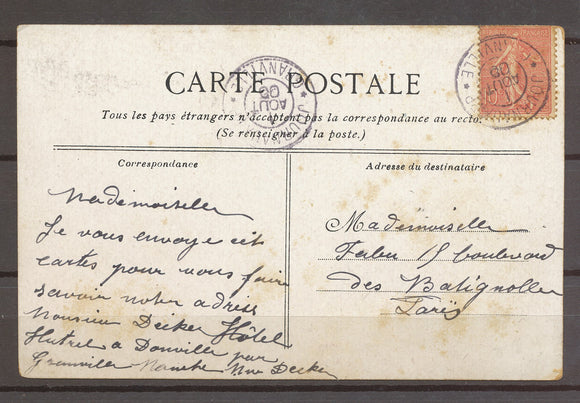 CARTE POSTALE
Tous les pays étrangers n'acceptent pas la correspondance au recto.
(Se renseigner à la poste.)
Correspondance
Mademoiselle
Je vous envoye cet
cartes pour vous faire
savoir noter adress
Monsieur Decker Hôtel
Hutrel a Donville par
Granville Manche Mme Decker
Adresse du destinataire
Mademoiselle
boulevard
des Batignolles
Paris
AOUT
05
JOURNAUX
AOUT
05